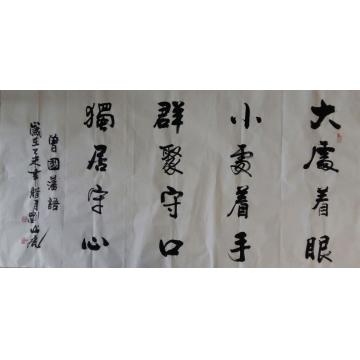 大處着眼
小處着手
群聚守口
獨居守心
曾國藩語
歲在乙未年臘月劉